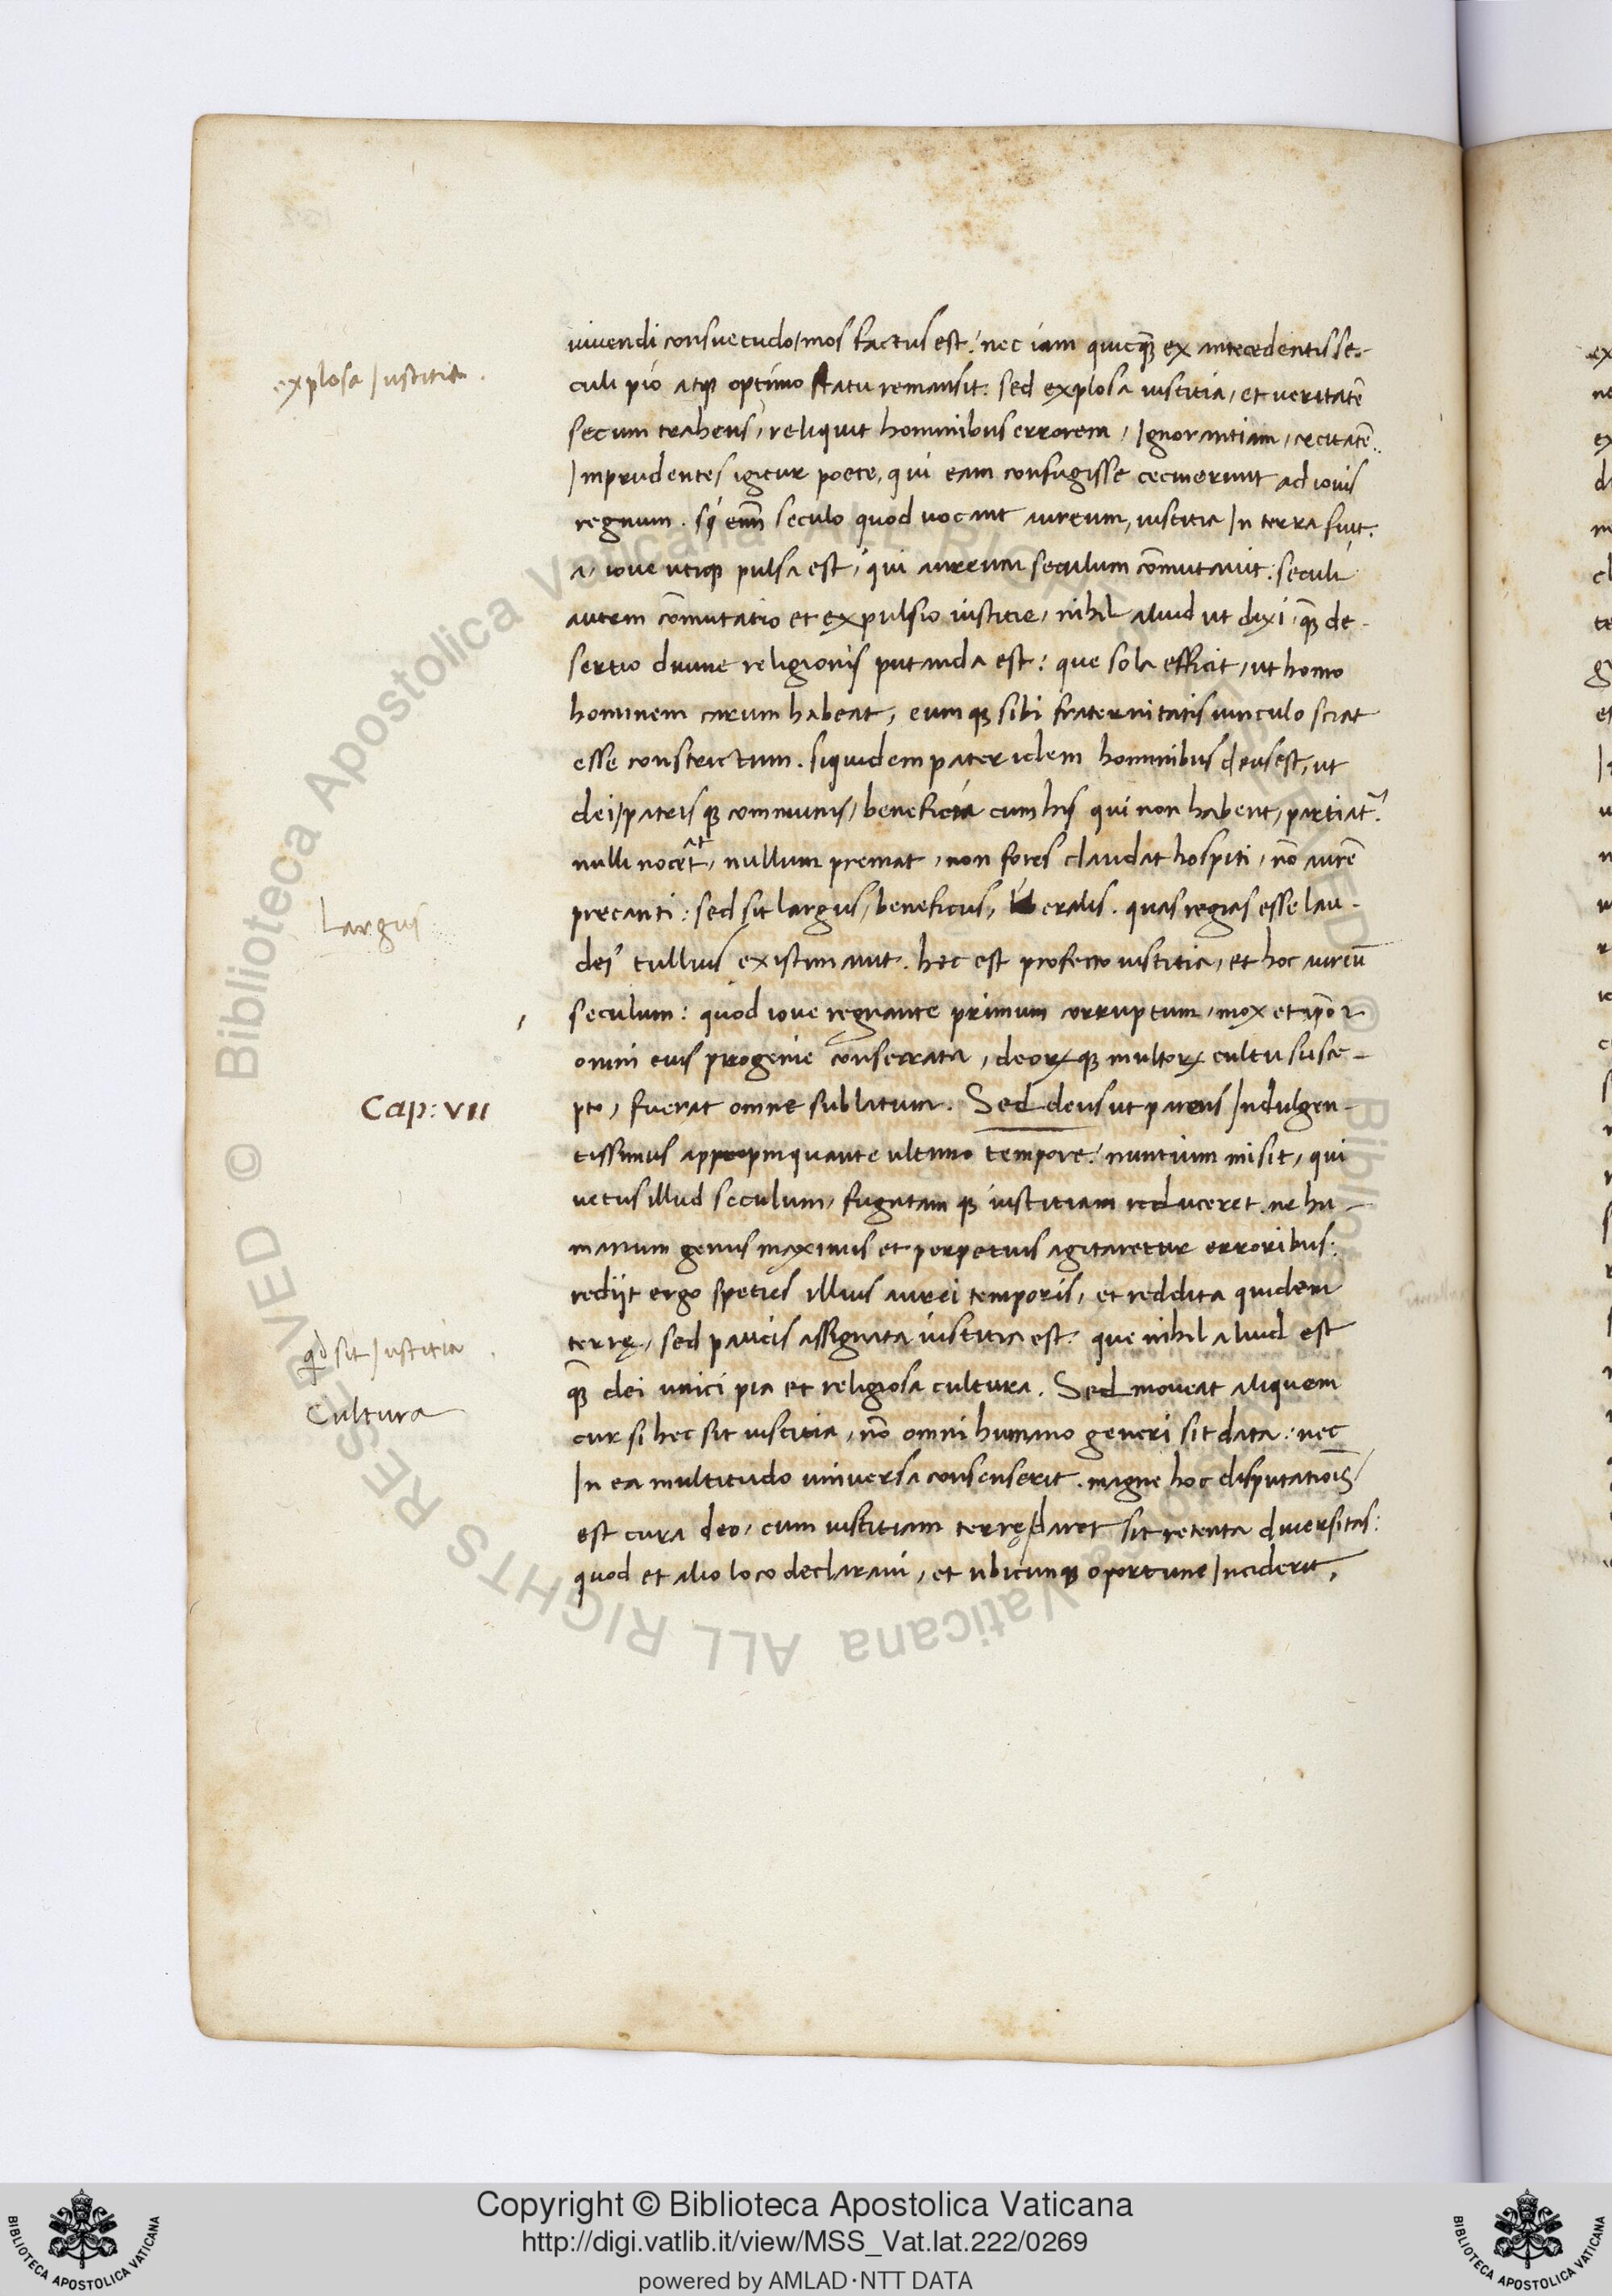 explosa Iustitia.
Largus
Cap: VII
qd sit Iustitia
Cultura
vivendi consuetudo/mos factus est: nec iam quicq̃ ex antecedentis se-
culi pio atq; optimo statu remansit: sed explosa iusticia, et veritatẽ
secum trahens, reliquit hominibus errorem, Ignorantiam, cecitatẽ.
Imprudentes igitur poete, qui eam confugisse cecinerunt ad iovis
regnum. Sí eñ seculo quod vocant aureum, iusticia In terra fuit:
a, iove utiq; pulsa est, qui aureum seculum cõmutavit: seculi
autem cõmutatio et expulsio iusticie, nihil aliud ut dixi, q̃ de-
sertio divine religionis putanda est: que sola efficit, ut homo
hominem carum habeat, eumq; sibi fraternitatis vinculo sciat
esse constrictum. siquidem pater idem hominibus deus est, ut
dei/patrisq; communis/beneficia cum his qui non habent, partiat̃:
nulli nocet at, nullum premat, non fores claudat hospiti, nõ aurẽ
precanti: sed sit largus, beneficus, liberalis. quas regias esse lau-
des tullius existimavit. hec est profecto iusticia, et hoc aureũ
seculum: quod iove regnante primum corruptum, mox et ipõ et
omni eius progenie consecrata, deorꝝq; multorꝝ cultu susce-
pto, fuerat omne sublatum. Sed deus ut parens Indulgen-
tissimus appropinquante ultimo tempore: nuntium misit, qui
vetus illud seculum, fugatamq; iusticiam reduceret. ne hu-
manum genus maximis et perpetuis agitaretur erroribus:
rediit ergo species illius aurei temporis, et reddita quidem
terrę, sed paucis assignata iusticia est: que nihil aliud est
q̃ dei unici pia et religiosa cultura. Sed moveat aliquem
cur si hec sit iusticia, nõ omni humano generi sit data: nec
In ea multitudo universa consenserit. magne hoc disputatiõis
est cura deo, cum iusticiam terrę/daret sit retenta diversitas:
quod et alio loco declaravi, et ubicunq; oportune Inciderit,
© Biblioteca Apostolica Vaticana ALL RIGHTS RESERVED
Copyright © Biblioteca Apostolica Vaticana
http://digi.vatlib.it/view/MSS_Vat.lat.222/0269
powered by AMLAD·NTT DATA
BIBLIOTECA APOSTOLICA VATICANA
BIBLIOTECA APOSTOLICA VATICANA